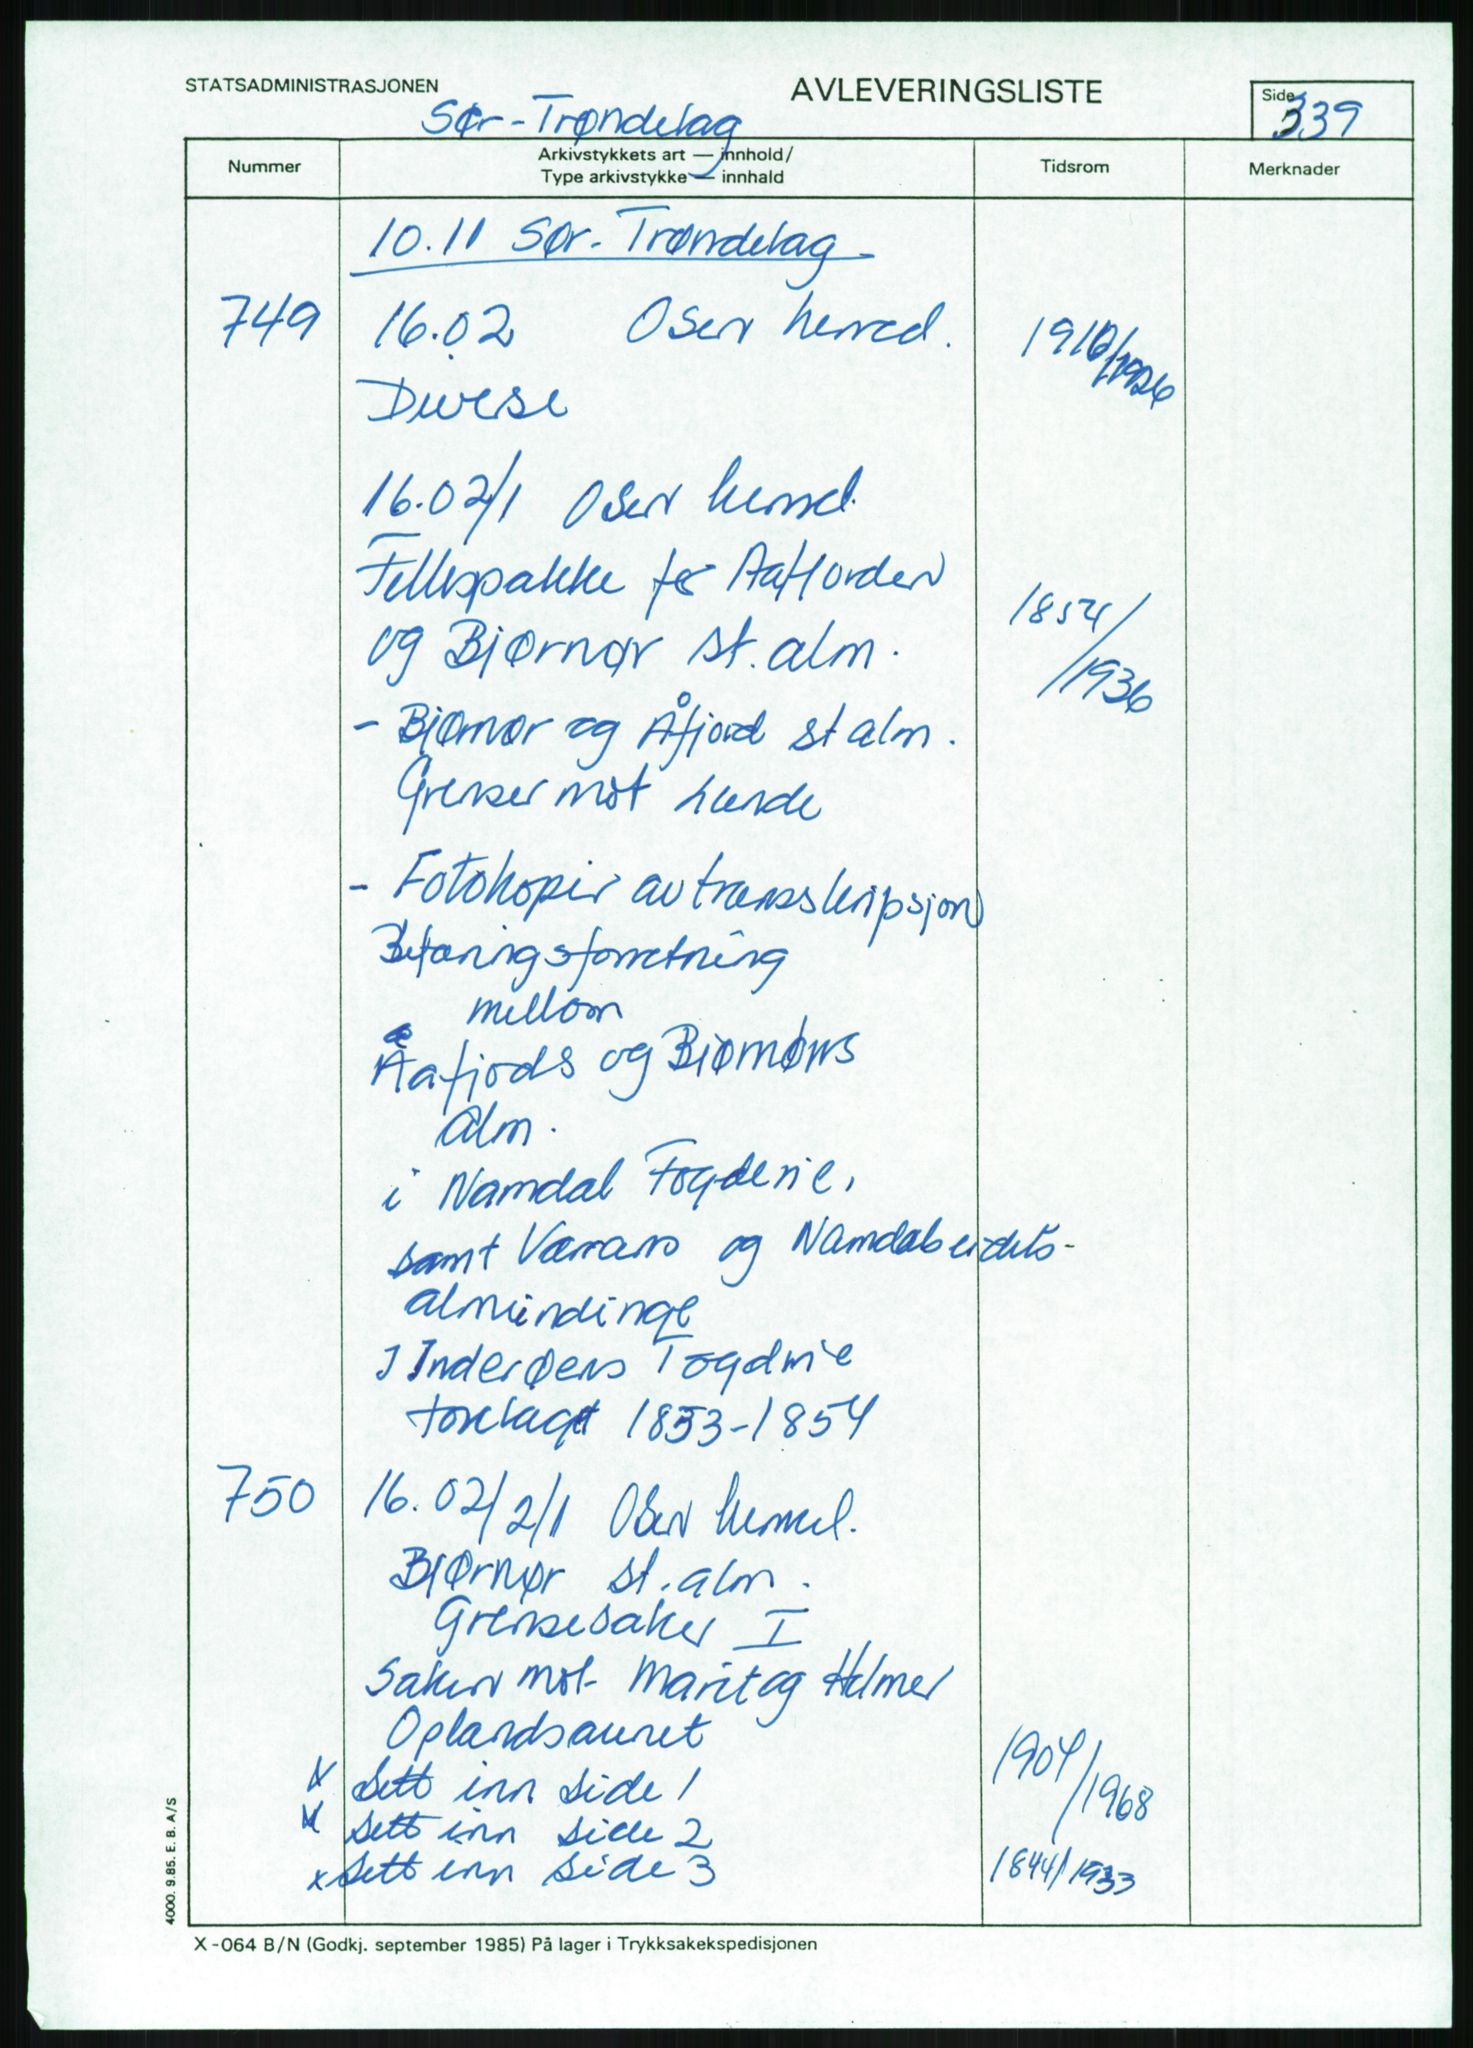 STATSADMINISTRASJONEN
AVLEVERINGSLISTE
Side
339
Sør-Trøndelag
Nummer
Arkivstykkets art — innhold/
Type arkivstykke — innhald
Tidsrom
Merknader
10.11 Sør-Trøndelag
749 16.02 Osen herred. 1910/1926
Diverse
16.02/1 Osen herred.
Fellespakke for Aafjorden
og Bjørnør st. alm. 1854/1936
- Bjørnør og Åfjord st alm.
Grenser mot
- Fotokopier av transskripsjon
Befaringsforretning
mellom
Aafjords og Bjørnørs
alm.
i Namdal Fogderie,
samt Værrans og Namdalseidets-
almindinge
I Inderøens Fogderie
foretagt 1853-1854
750 16.02/2/1 Osen herred.
Bjørnør st. alm.
Grensesaker I
Saken mot Marit og Helmer
Oplandsaunet
x Sett inn side 1 1904/1968
x Sett inn side 2
x Sett inn side 3 1844/1933
4000. 9.85. E. B. A/S
X-064 B/N (Godkj. september 1985) På lager i Trykksakekspedisjonen